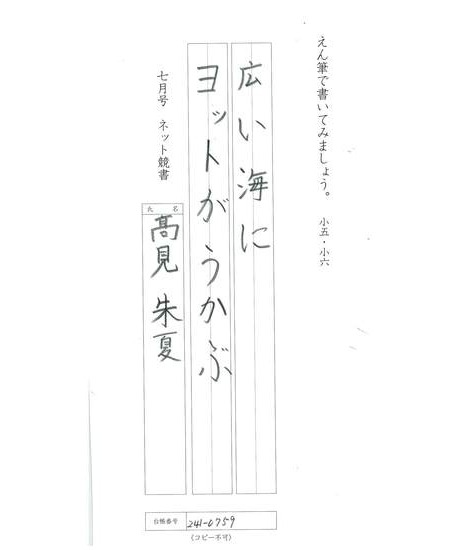 えん筆で書いてみましょう。 小五・小六
広い海に
ヨットがうかぶ
七月号 ネット競書
氏名
髙見 朱夏
台帳番号 241-0759
(コピー不可)